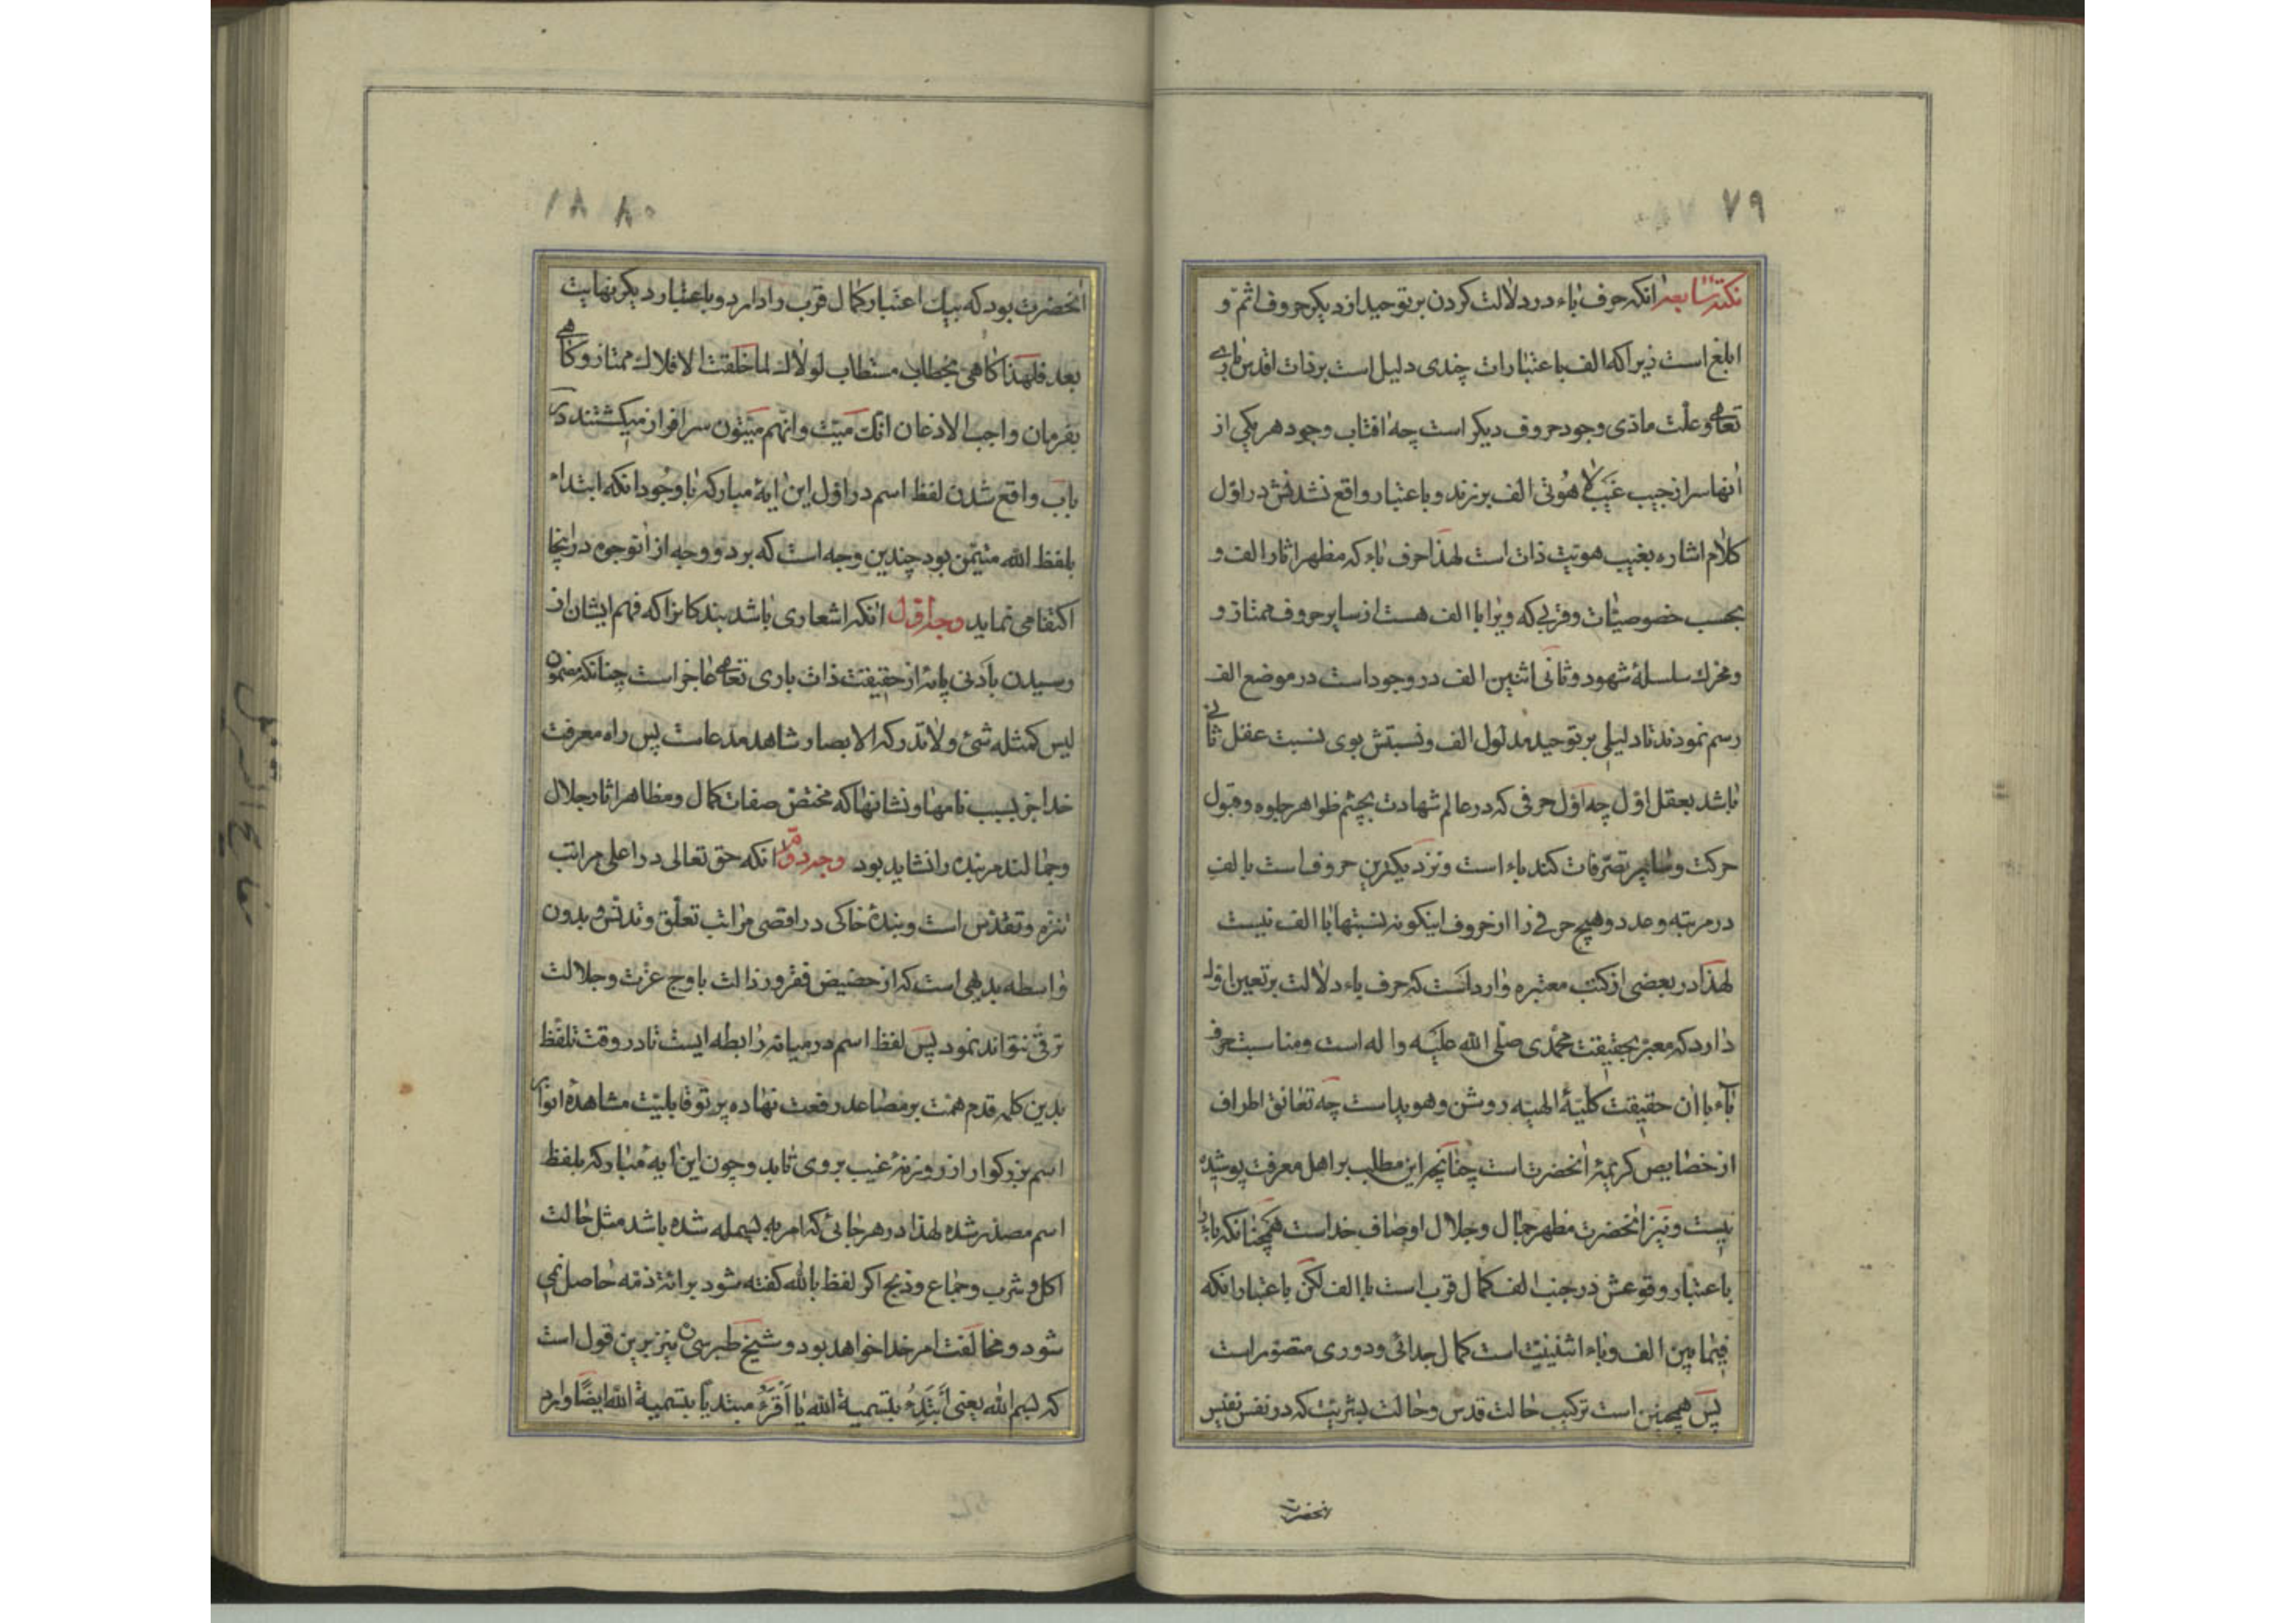 ٧٩
نکته سابعه آنکه حرف باء در دلالت کردن بر توحید از دیگر حروف اتم و
ابلغ است زیرا که الف باعتبارات چندی دلیل است بر ذات اقدس باری
تعالی و علت مادی وجود حروف دیگر است چه آفتاب وجود هر یکی از
آنها سر از جیب غیب لاهوتی الف برزند و باعتبار واقع نشدنش در اول
کلام اشاره بغیب هویت ذات است لهذا حرف باء که مظهر آثار الف و
بحسب خصوصیّات و قربی که ویرا با الف هست از سایر حروف ممتاز و
و محرک سلسلهٔ شهود و ثانی اثنین الف در وجود است در موضع الف
رسم نمودند تا دلیلی بر توحید مدلول الف و نسبتش بوی نسبت عقل ثانی
باشد بعقل اوّل چه اوّل حرفی که در عالم شهادت بچشم ظواهر جلوه و قبول
حرکت و سایر تصرّفات کند باء است و نزدیکترین حروف است بالف
در مرتبه و عدد و هیچ حرفی را از حروف اینکونه نسبتها با الف نیست
لهذا در بعضی از کتب معتبره وارد است که حرف باء دلالت بر تعین اول
دارد که معبر بحقیقت محمّدی صلّی الله علیه و اله است و مناسبت حرف
باء با آن حقیقت کلیّهٔ الهیّه روشن و هویداست چه تعانق اطراف
از خصایص کریمهٔ آنحضرت است چنانچه این مطلب بر اهل معرفت پوشیده
نیست و نیز آنحضرت مظهر جمال و جلال اوصاف خداست همچنانکه باء را
باعتبار وقوعش در جنب الف کمال قرب است با الف لکن باعتبار آنکه
فیما بین الف و باء اثنینیّت است کمال جدائی و دوری متصوّر است
پس همچنین است ترکیب حالت قدس و حالت بشریّت که در نفس نفیس
آنحضرت
٨٠ ١٨
آنحضرت بود که بیک اعتبار کمال قرب را دارد و باعتبار دیگر نهایت
بعد فلهذا کاهی بخطاب مستطاب لولاک لما خلقت الافلاک ممتاز و کاهی
بفرمان واجب الاذعان انّک میّت و انّهم میّتون سرافراز میکشتند در
باب واقع شدن لفظ اسم در اوّل این آیهٔ مبارکه با وجود آنکه ابتداء
بلفظ الله متیمّن بود چندین وجه است که بر دو وجه از آنوجوه در اینجا
اکتفا می نماید وجه اوّل آنکه اشعاری باشد بندکانرا که فهم ایشان از
رسیدن بادنی پایه از حقیقت ذات باری تعالی عاجز است چنانکه مضمون
لیس کمثله شیء و لا تدرکه الابصار شاهد مدعاست پس راه معرفت
خدا جز بسبب نامها و نشانها که مختصّ صفات کمال و مظاهر آثار جلال
و جمالند مر بنده را نشاید بود وجه دوّم آنکه حق تعالی در اعلی مراتب
تنزه و تقدّس است و بندهٔ خاکی در اقصی مراتب تعلّق و تدنّس و بدون
واسطه بدیهی است که از حضیض فقر و رذالت باوج عزّت و جلالت
ترقّی نتواند نمود پس لفظ اسم در میانه رابطه ایست تا در وقت تلفّظ
بدین کلمه قدم همّت بر مصاعد رفعت نهاده پرتو قابلیّت مشاهدهٔ انوار
اسم بزرکوار از روزنهٔ غیب بر وی تابد و چون این آیهٔ مبارکه بلفظ
اسم مصدّر شده لهذا در هر جائی که امر به بسمله شده باشد مثل حالت
اکل و شرب و جماع و ذبح اکر لفظ بالله کفته شود برائت ذمّه حاصل نمی
شود و مخالفت امر خدا خواهد بود و شیخ طبرسی نیز برین قول است
که بسم الله یعنی أبتدء بتسمیة الله یا أقرء مبتدیا بتسمیة الله ایضًا وارد